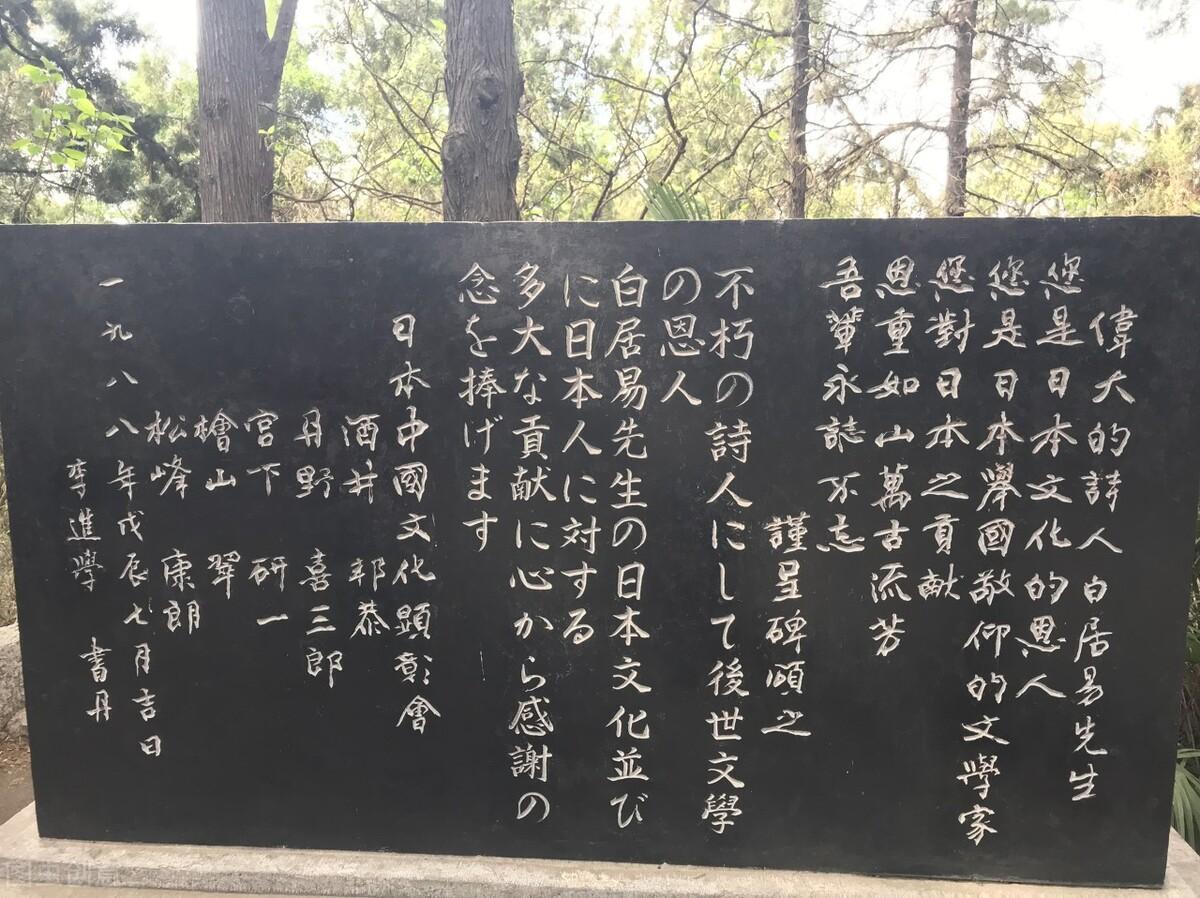 偉大的詩人白居易先生
您是日本文化的恩人
您是日本舉國敬仰的文學家
您對日本之貢献
恩重如山萬古流芳
吾輩永誌不忘
謹呈碑頌之
不朽の詩人にして後世文學
の恩人
白居易先生の日本文化並び
に日本人に対する
多大な貢献に心から感謝の
念を捧げます
日本中國文化顕彰會
酒井 邦恭
丹野 喜三郎
宮下 研一
檜山 翠
松峰 康朗
一九八八年戊辰七月吉日
李進學 書丹